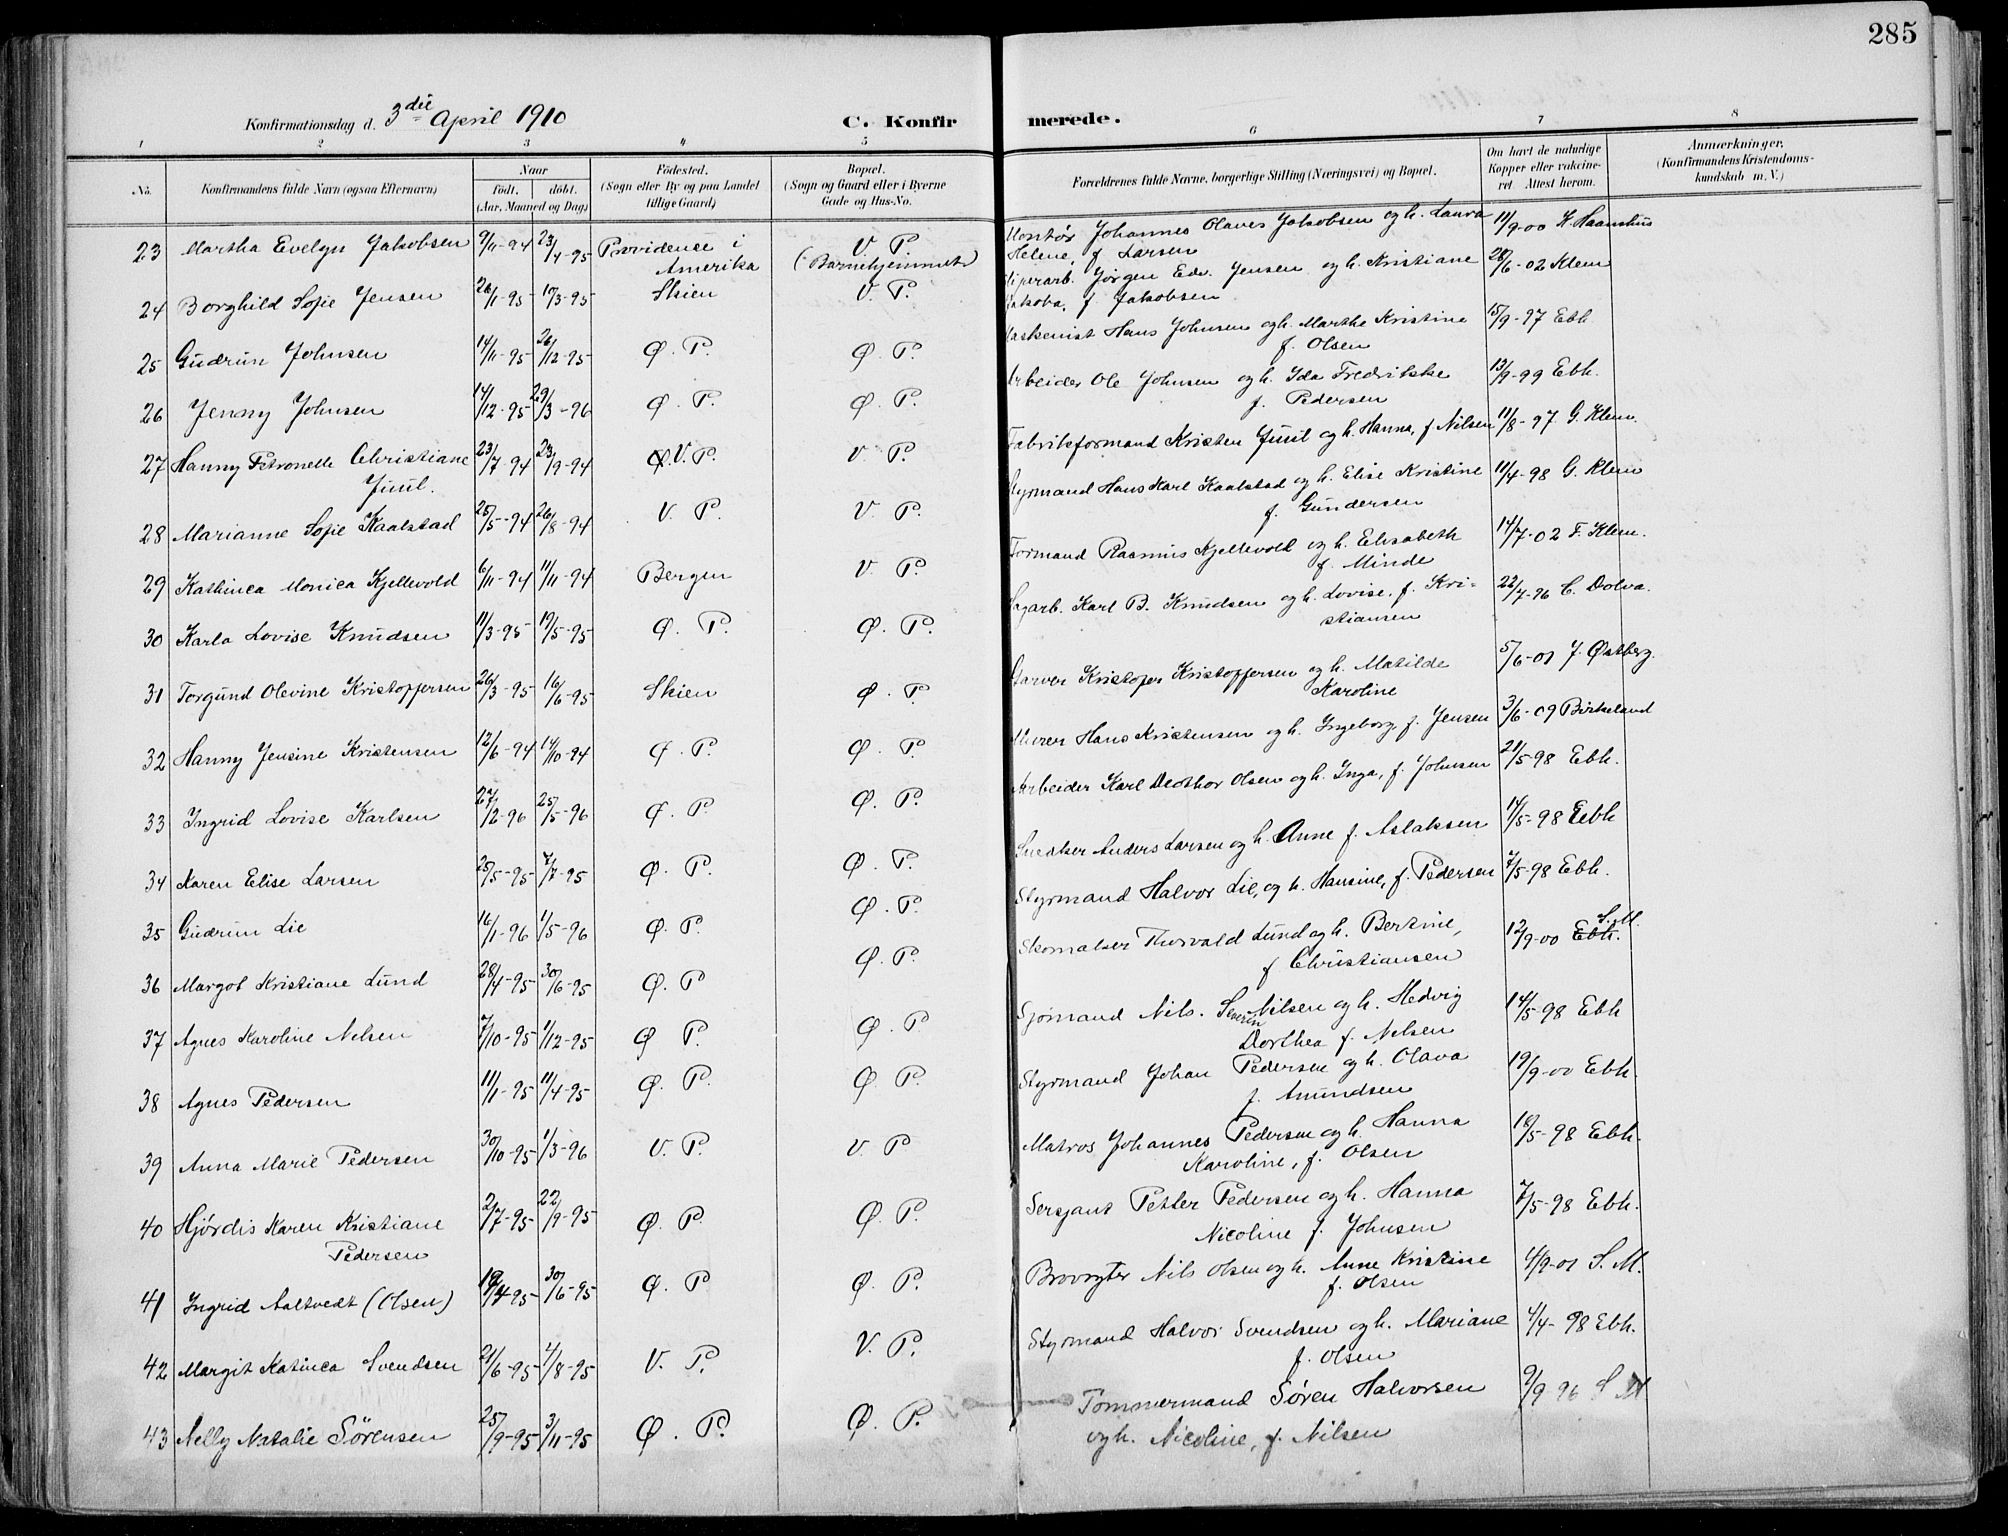 285
Konfirmationsdag d. 3die April 1910
C. Konfirmerede.
1 2 3 4 5 6 7 8
No.
Konfirmandens fulde Navn (ogsaa Efternavn)
Naar
födt. döbt.
(Aar, Maaned og Dag)
Födested.
(Sogn eller By og paa Landet
tillige Gaard)
Bopæl.
(Sogn og Gaard eller i Byerne
Gade og Hus-No.
Forældrenes fulde Navne, borgerlige Stilling (Næringsvei) og Bopæl.
Om havt de naturlige
Kopper eller vakcine-
ret Attest herom.
Anmærkninger,
(Konfirmandens Kristendoms-
kundskab m. V.)
23 Martha Evelyn Jakobsen 9/11-94 23/4-95 Providence i Amerika V. P. (Barnehjemmet) Montør Johannes Olaves Jakobsen og h. Laura
Helene, f. Larsen 11/9-00 K. Haanshus
24 Borghild Sofie Jensen 26/1-95 10/3-95 Skien V. P. Jørgen Edv. Jensen og h. Kristiane
Jakoba, f. Jakobsen 28/6-02 Klem
25 Gudrun Johnsen 14/11-95 26/12-95 Ø. P. Ø. P. Maskenist Hans Johnsen og h. Marthe Kristine
f. Olsen 15/9-97 Ebh.
26 Jenny Johnsen 14/12-95 29/3-96 Ø. P. Ø. P. Arbeider Ole Johnsen og h. Ida Fredrikke
f. Pedersen 13/9-99 Ebh.
27 Hanny Petronelle Christiane
Juul. 23/7-94 23/9-94 V. P. V. P. Fabriksformand Kristen Juul og h. Hanna, f. Nilsen 11/8-97 G. Klem.
28 Marianne Sofie Kaalstad 25/5-94 26/8-94 V. P. V. P. Styrmand Hans Karl Kaalstad og h. Elise Kristine
f. Gundersen 11/4-98 G. Klem
29 Kathinca Monica Kjellevold 6/11-94 11/11-94 Bergen V. P. Formand Rasmus Kjellevold og h. Elisabeth
f. Minde 14/7-02 F. Klem.
30 Karla Lovise Knudsen 11/3-95 19/5-95 Ø. P. Ø. P. Sagarb. Karl B. Knudsen og h. Lovise, f. Kri-
stiansen 22/7-96 C. Dolva.
31 Torgund Olevine Kristoffersen 26/3-95 16/6-95 Skien Ø. P. Garver Kristofer Kristoffersen og h. Matilde
Karoline 5/6-01 J. Østberg.
32 Hanny Jensine Kristensen 12/6-94 14/10-94 Ø. P. Ø. P. Murer Hans Kristensen og h. Ingeborg, f. Jensen 3/6-09 Birkeland
33 Ingrid Lovise Karlsen 27/2-96 25/5-96 Ø. P. Ø. P. Arbeider Karl Olsen og h. Inga, f. Johnsen 21/5-98 Ebh.
34 Karen Elise Larsen 25/5-95 7/7-95 Ø. P. Ø. P. Snedker Anders Larsen og h. Anne f. Aslaksen 14/5-98 Ebh
35 Gudrun Lie 16/1-96 1/5-96 Ø. P. Ø. P. Styrmand Halvor Lie, og h. Hansine, f. Pedersen 7/5-98 Ebh.
36 Margot Kristiane Lund 28/4-95 30/6-95 Ø. P. Ø. P. Skomaker Thorvald Lund og h. Bertine,
f. Christiansen 12/9-00 Ebh. S. M.
37 Agnes Karoline Nilsen 7/10-95 1/12-95 Ø P. Ø. P Sjømand Nils. Severin Nilsen og h. Hedvig
Dorthea f. Nilsen 14/5-98 Ebh
38 Agnes Pedersen 11/1-95 11/4-95 Ø. P. Ø. P. Styrmand Johan Pedersen og h. Olava
f. Amundsen 19/9-00 Ebh.
39 Anna Marie Pedersen 30/10-95 1/3-96 V. P. V. P Matros Johannes Pedersen og h. Hanna
Karoline, f. Olsen 18/5-98 Ebh.
40 Hjørdis Karen Kristiane
Pedersen 2/7-95 22/9-95 Ø. P. Ø. P. Sersjant Petter Pedersen og h. Hanna
Nicoline f. Johnsen 7/5-98 Ebh.
41 Ingrid Aaltvedt (Olsen) 19/4-95 30/6-95 Ø. P. Ø. P. Brovogter Nils Olsen og h. Anne Kristine
f. Olsen 4/9-01 S. M.
42 Margit Katinca Svendsen 21/6-95 4/8-95 V. P. V. P. Styrmand Halvor Svendsen og h. Mariane
f. Olsen 4/4-98 Ebh.
43 Nelly Natalie Sørensen 25/9-95 3/11-95 Ø. P. Ø. P. Tømmermand Søren Halvorsen
og h. Nicoline, f. Nilsen 9/9-96 S M